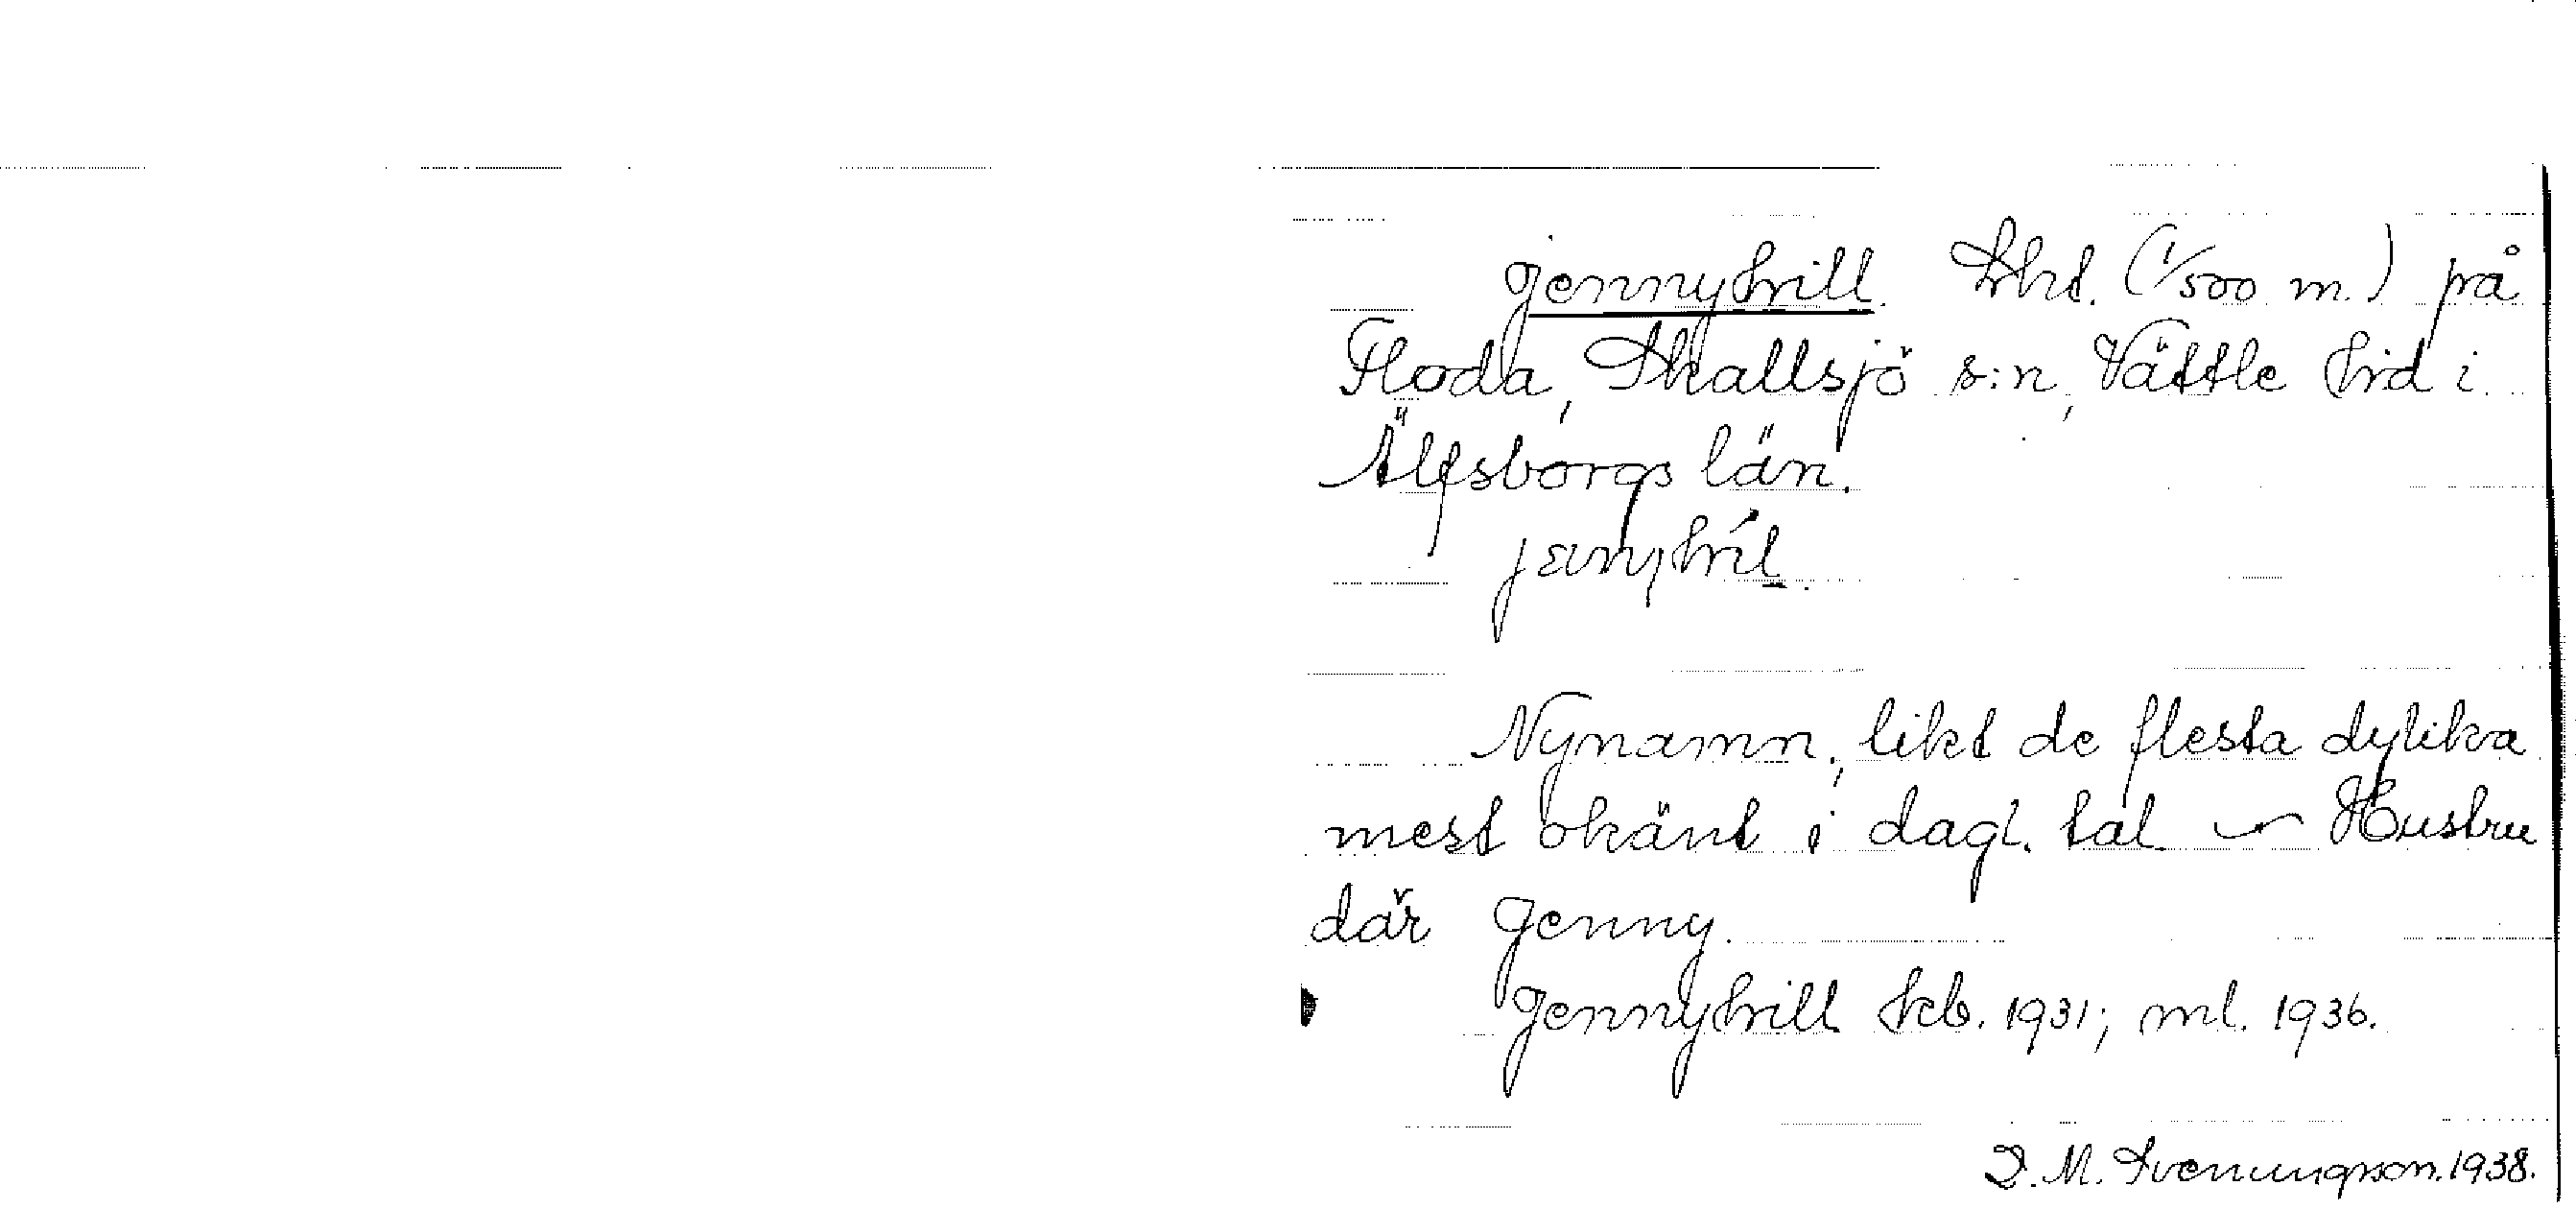 Jennyhill. Lht. (1/500 m.) på
Floda, Skallsjö s:n, Vättle hrd i
Älfsborgs län.
Nynamn, likt de flesta dylika
mest okänt i dagl. tal. ~ Hustru
där Jenny.
Jennyhill kb. 1931; ml. 1936.
D. M. Svenungsson. 1938.